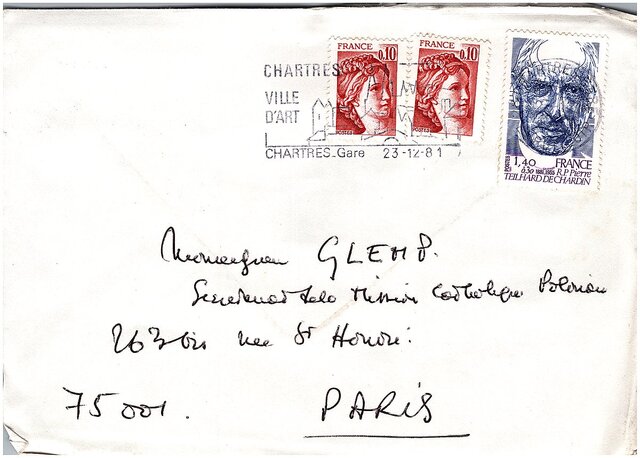 CHARTRES
VILLE
D'ART
CHARTRES.Gare 23-12-81
FRANCE 0,10
POSTES
FRANCE 0,10
POSTES
1,40 FRANCE
0,30 1881-1955 R.P. Pierre
TEILHARD DE CHARDIN
Monseigneur GLEMP.
Secrétariat de la Mission Catholique Polonaise
263 bis rue St Honoré.
75001.
PARIS